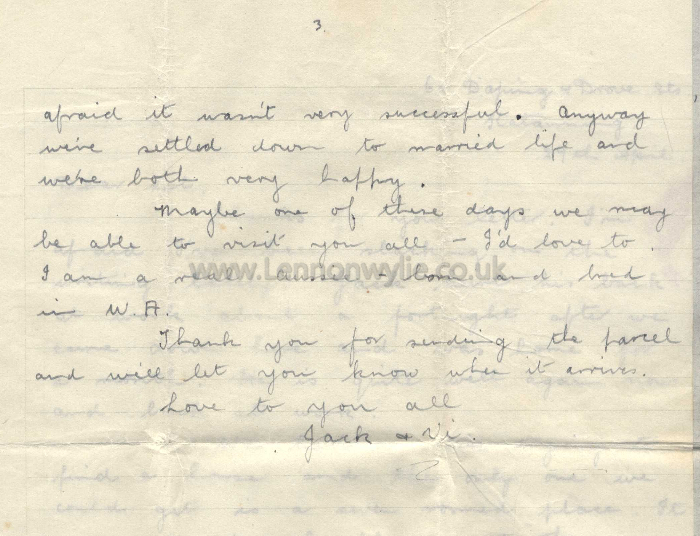 3.
afraid it wasn't very successful. Anyway
we've settled down to married life and
we're both very happy.
Maybe one of these days we may
be able to visit you all – I'd love to.
I am a real Aussie – born and bred
in W.A.
Thank you for sending the parcel
and we'll let you know when it arrives.
Love to you all
Jack & Vi.
www.Lennonwylie.co.uk